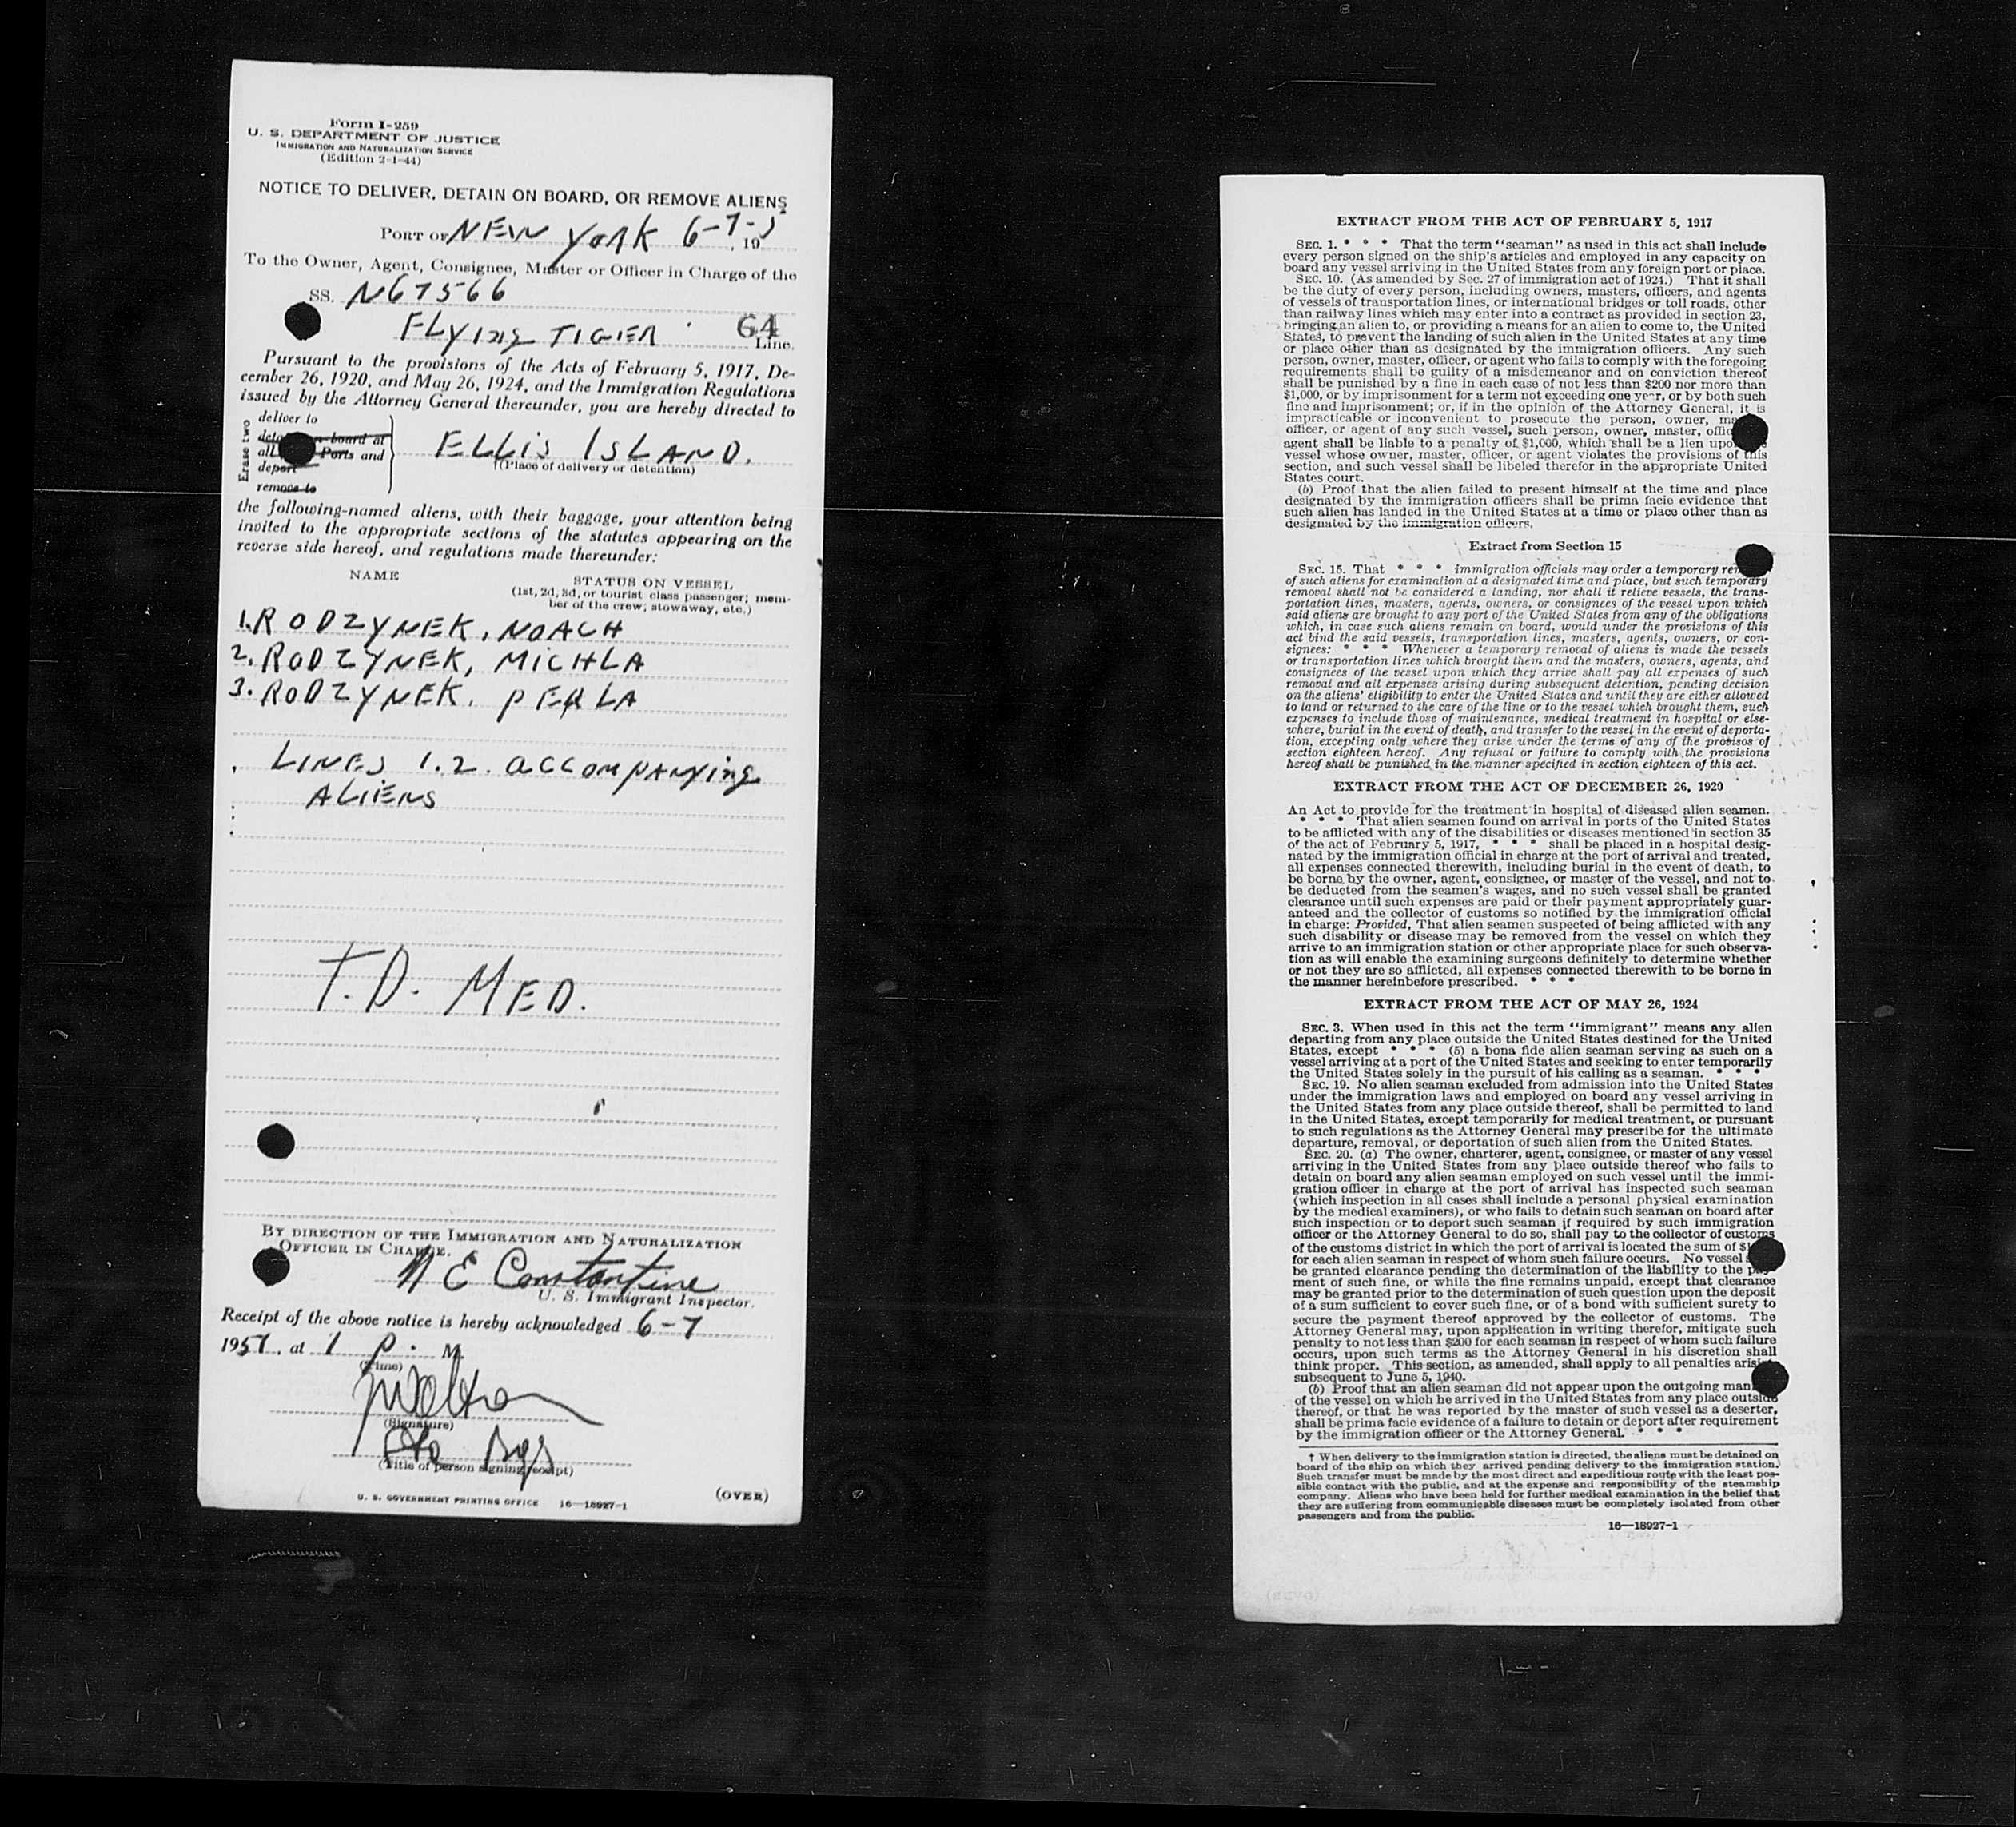 Form I-259
U. S. DEPARTMENT OF JUSTICE
IMMIGRATION AND NATURALIZATION SERVICE
(Edition 2-1-44)
NOTICE TO DELIVER, DETAIN ON BOARD, OR REMOVE ALIENS
PORT OF NEW YORK 6-7-5, 19
To the Owner, Agent, Consignee, Master or Officer in Charge of the
SS. N67566
FLYING TIGER 64 Line.
Pursuant to the provisions of the Acts of February 5, 1917, De-
cember 26, 1920, and May 26, 1924, and the Immigration Regulations
issued by the Attorney General thereunder, you are hereby directed to
Erase two
deliver to
board at
all Ports and
deport
remove to
ELLIS ISLAND.
†(Place of delivery or detention)
the following-named aliens, with their baggage, your attention being
invited to the appropriate sections of the statutes appearing on the
reverse side hereof, and regulations made thereunder:
NAME STATUS ON VESSEL
(1st, 2d, 3d, or tourist class passenger; mem-
ber of the crew; stowaway, etc.)
1. RODZYNEK, NOACH
2. RODZYNEK, MICHLA
3. RODZYNEK, PERLA
LINES 1.2. accompanying
ALIENS
T.D. MED.
BY DIRECTION OF THE IMMIGRATION AND NATURALIZATION
OFFICER IN CHARGE.
N E Constantine
U. S. Immigrant Inspector.
Receipt of the above notice is hereby acknowledged 6-7
1951, at 1 P. M.
(Time)
(Signature)
(Title of person signing receipt)
U. S. GOVERNMENT PRINTING OFFICE 16-18927-1
(OVER)
EXTRACT FROM THE ACT OF FEBRUARY 5, 1917
SEC. 1. * * * That the term "seaman" as used in this act shall include
every person signed on the ship's articles and employed in any capacity on
board any vessel arriving in the United States from any foreign port or place.
SEC. 10. (As amended by Sec. 27 of immigration act of 1924.) That it shall
be the duty of every person, including owners, masters, officers, and agents
of vessels of transportation lines, or international bridges or toll roads, other
than railway lines which may enter into a contract as provided in section 23,
bringing an alien to, or providing a means for an alien to come to, the United
States, to prevent the landing of such alien in the United States at any time
or place other than as designated by the immigration officers. Any such
person, owner, master, officer, or agent who fails to comply with the foregoing
requirements shall be guilty of a misdemeanor and on conviction thereof
shall be punished by a fine in each case of not less than $200 nor more than
$1,000, or by imprisonment for a term not exceeding one year, or by both such
fine and imprisonment; or, if in the opinion of the Attorney General, it is
impracticable or inconvenient to prosecute the person, owner,
officer, or agent of any such vessel, such person, owner, master,
agent shall be liable to a penalty of $1,000, which shall be a lien
vessel whose owner, master, officer, or agent violates the provisions of this
section, and such vessel shall be libeled therefor in the appropriate United
States court.
(b) Proof that the alien failed to present himself at the time and place
designated by the immigration officers shall be prima facie evidence that
such alien has landed in the United States at a time or place other than as
designated by the immigration officers.
Extract from Section 15
SEC. 15. That * * * immigration officials may order a temporary
of such aliens for examination at a designated time and place, but such temporary
removal shall not be considered a landing, nor shall it relieve vessels, the trans-
portation lines, masters, agents, owners, or consignees of the vessel upon which
said aliens are brought to any port of the United States from any of the obligations
which, in case such aliens remain on board, would under the provisions of this
act bind the said vessels, transportation lines, masters, agents, owners, or con-
signees: * * * Whenever a temporary removal of aliens is made the vessels
or transportation lines which brought them and the masters, owners, agents, and
consignees of the vessel upon which they arrive shall pay all expenses of such
removal and all expenses arising during subsequent detention, pending decision
on the aliens' eligibility to enter the United States and until they are either allowed
to land or returned to the care of the line or to the vessel which brought them, such
expenses to include those of maintenance, medical treatment in hospital or else-
where, burial in the event of death, and transfer to the vessel in the event of deporta-
tion, excepting only where they arise under the terms of any of the provisos of
section eighteen hereof. Any refusal or failure to comply with the provisions
hereof shall be punished in the manner specified in section eighteen of this act.
EXTRACT FROM THE ACT OF DECEMBER 26, 1920
An Act to provide for the treatment in hospital of diseased alien seamen.
* * * That alien seamen found on arrival in ports of the United States
to be afflicted with any of the disabilities or diseases mentioned in section 35
of the act of February 5, 1917, * * * shall be placed in a hospital desig-
nated by the immigration official in charge at the port of arrival and treated,
all expenses connected therewith, including burial in the event of death, to
be borne by the owner, agent, consignee, or master of the vessel, and not to
be deducted from the seamen's wages, and no such vessel shall be granted
clearance until such expenses are paid or their payment appropriately guar-
anteed and the collector of customs so notified by the immigration official
in charge: Provided, That alien seamen suspected of being afflicted with any
such disability or disease may be removed from the vessel on which they
arrive to an immigration station or other appropriate place for such observa-
tion as will enable the examining surgeons definitely to determine whether
or not they are so afflicted, all expenses connected therewith to be borne in
the manner hereinbefore prescribed. * * *
EXTRACT FROM THE ACT OF MAY 26, 1924
SEC. 3. When used in this act the term "immigrant" means any alien
departing from any place outside the United States destined for the United
States, except * * * (5) a bona fide alien seaman serving as such on a
vessel arriving at a port of the United States and seeking to enter temporarily
the United States solely in the pursuit of his calling as a seaman. * * *
SEC. 19. No alien seaman excluded from admission into the United States
under the immigration laws and employed on board any vessel arriving in
the United States from any place outside thereof, shall be permitted to land
in the United States, except temporarily for medical treatment, or pursuant
to such regulations as the Attorney General may prescribe for the ultimate
departure, removal, or deportation of such alien from the United States.
SEC. 20. (a) The owner, charterer, agent, consignee, or master of any vessel
arriving in the United States from any place outside thereof who fails to
detain on board any alien seaman employed on such vessel until the immi-
gration officer in charge at the port of arrival has inspected such seaman
(which inspection in all cases shall include a personal physical examination
by the medical examiners), or who fails to detain such seaman on board after
such inspection or to deport such seaman if required by such immigration
officer or the Attorney General to do so, shall pay to the collector of customs
of the customs district in which the port of arrival is located the sum of
for each alien seaman in respect of whom such failure occurs. No vessel
be granted clearance pending the determination of the liability to the pay-
ment of such fine, or while the fine remains unpaid, except that clearance
may be granted prior to the determination of such question upon the deposit
of a sum sufficient to cover such fine, or of a bond with sufficient surety to
secure the payment thereof approved by the collector of customs. The
Attorney General may, upon application in writing therefor, mitigate such
penalty to not less than $200 for each seaman in respect of whom such failure
occurs, upon such terms as the Attorney General in his discretion shall
think proper. This section, as amended, shall apply to all penalties arising
subsequent to June 5, 1940.
(b) Proof that an alien seaman did not appear upon the outgoing
of the vessel on which he arrived in the United States from any place outside
thereof, or that he was reported by the master of such vessel as a deserter,
shall be prima facie evidence of a failure to detain or deport after requirement
by the immigration officer or the Attorney General. * * *
† When delivery to the immigration station is directed, the aliens must be detained on
board of the ship on which they arrived pending delivery to the immigration station.
Such transfer must be made by the most direct and expeditious route with the least pos-
sible contact with the public, and at the expense and responsibility of the steamship
company. Aliens who have been held for further medical examination in the belief that
they are suffering from communicable diseases must be completely isolated from other
passengers and from the public.
16—18927-1